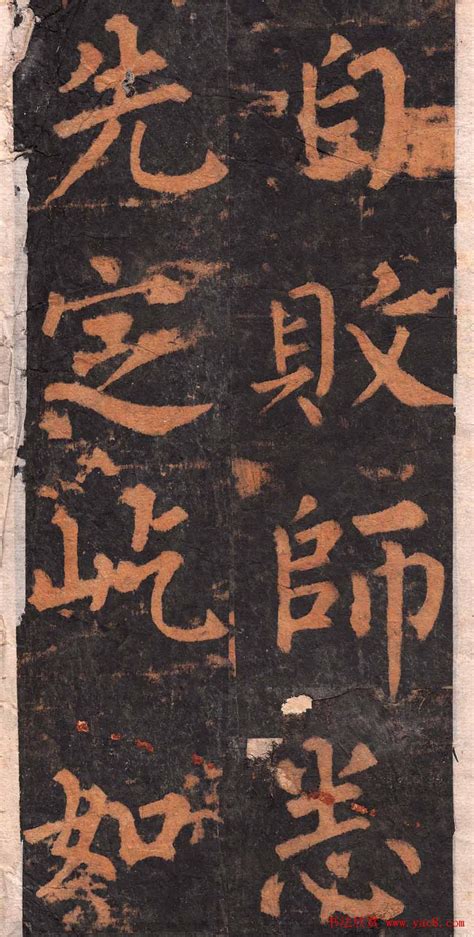 自敗師
先定屹如
书法欣赏 www.yac8.com